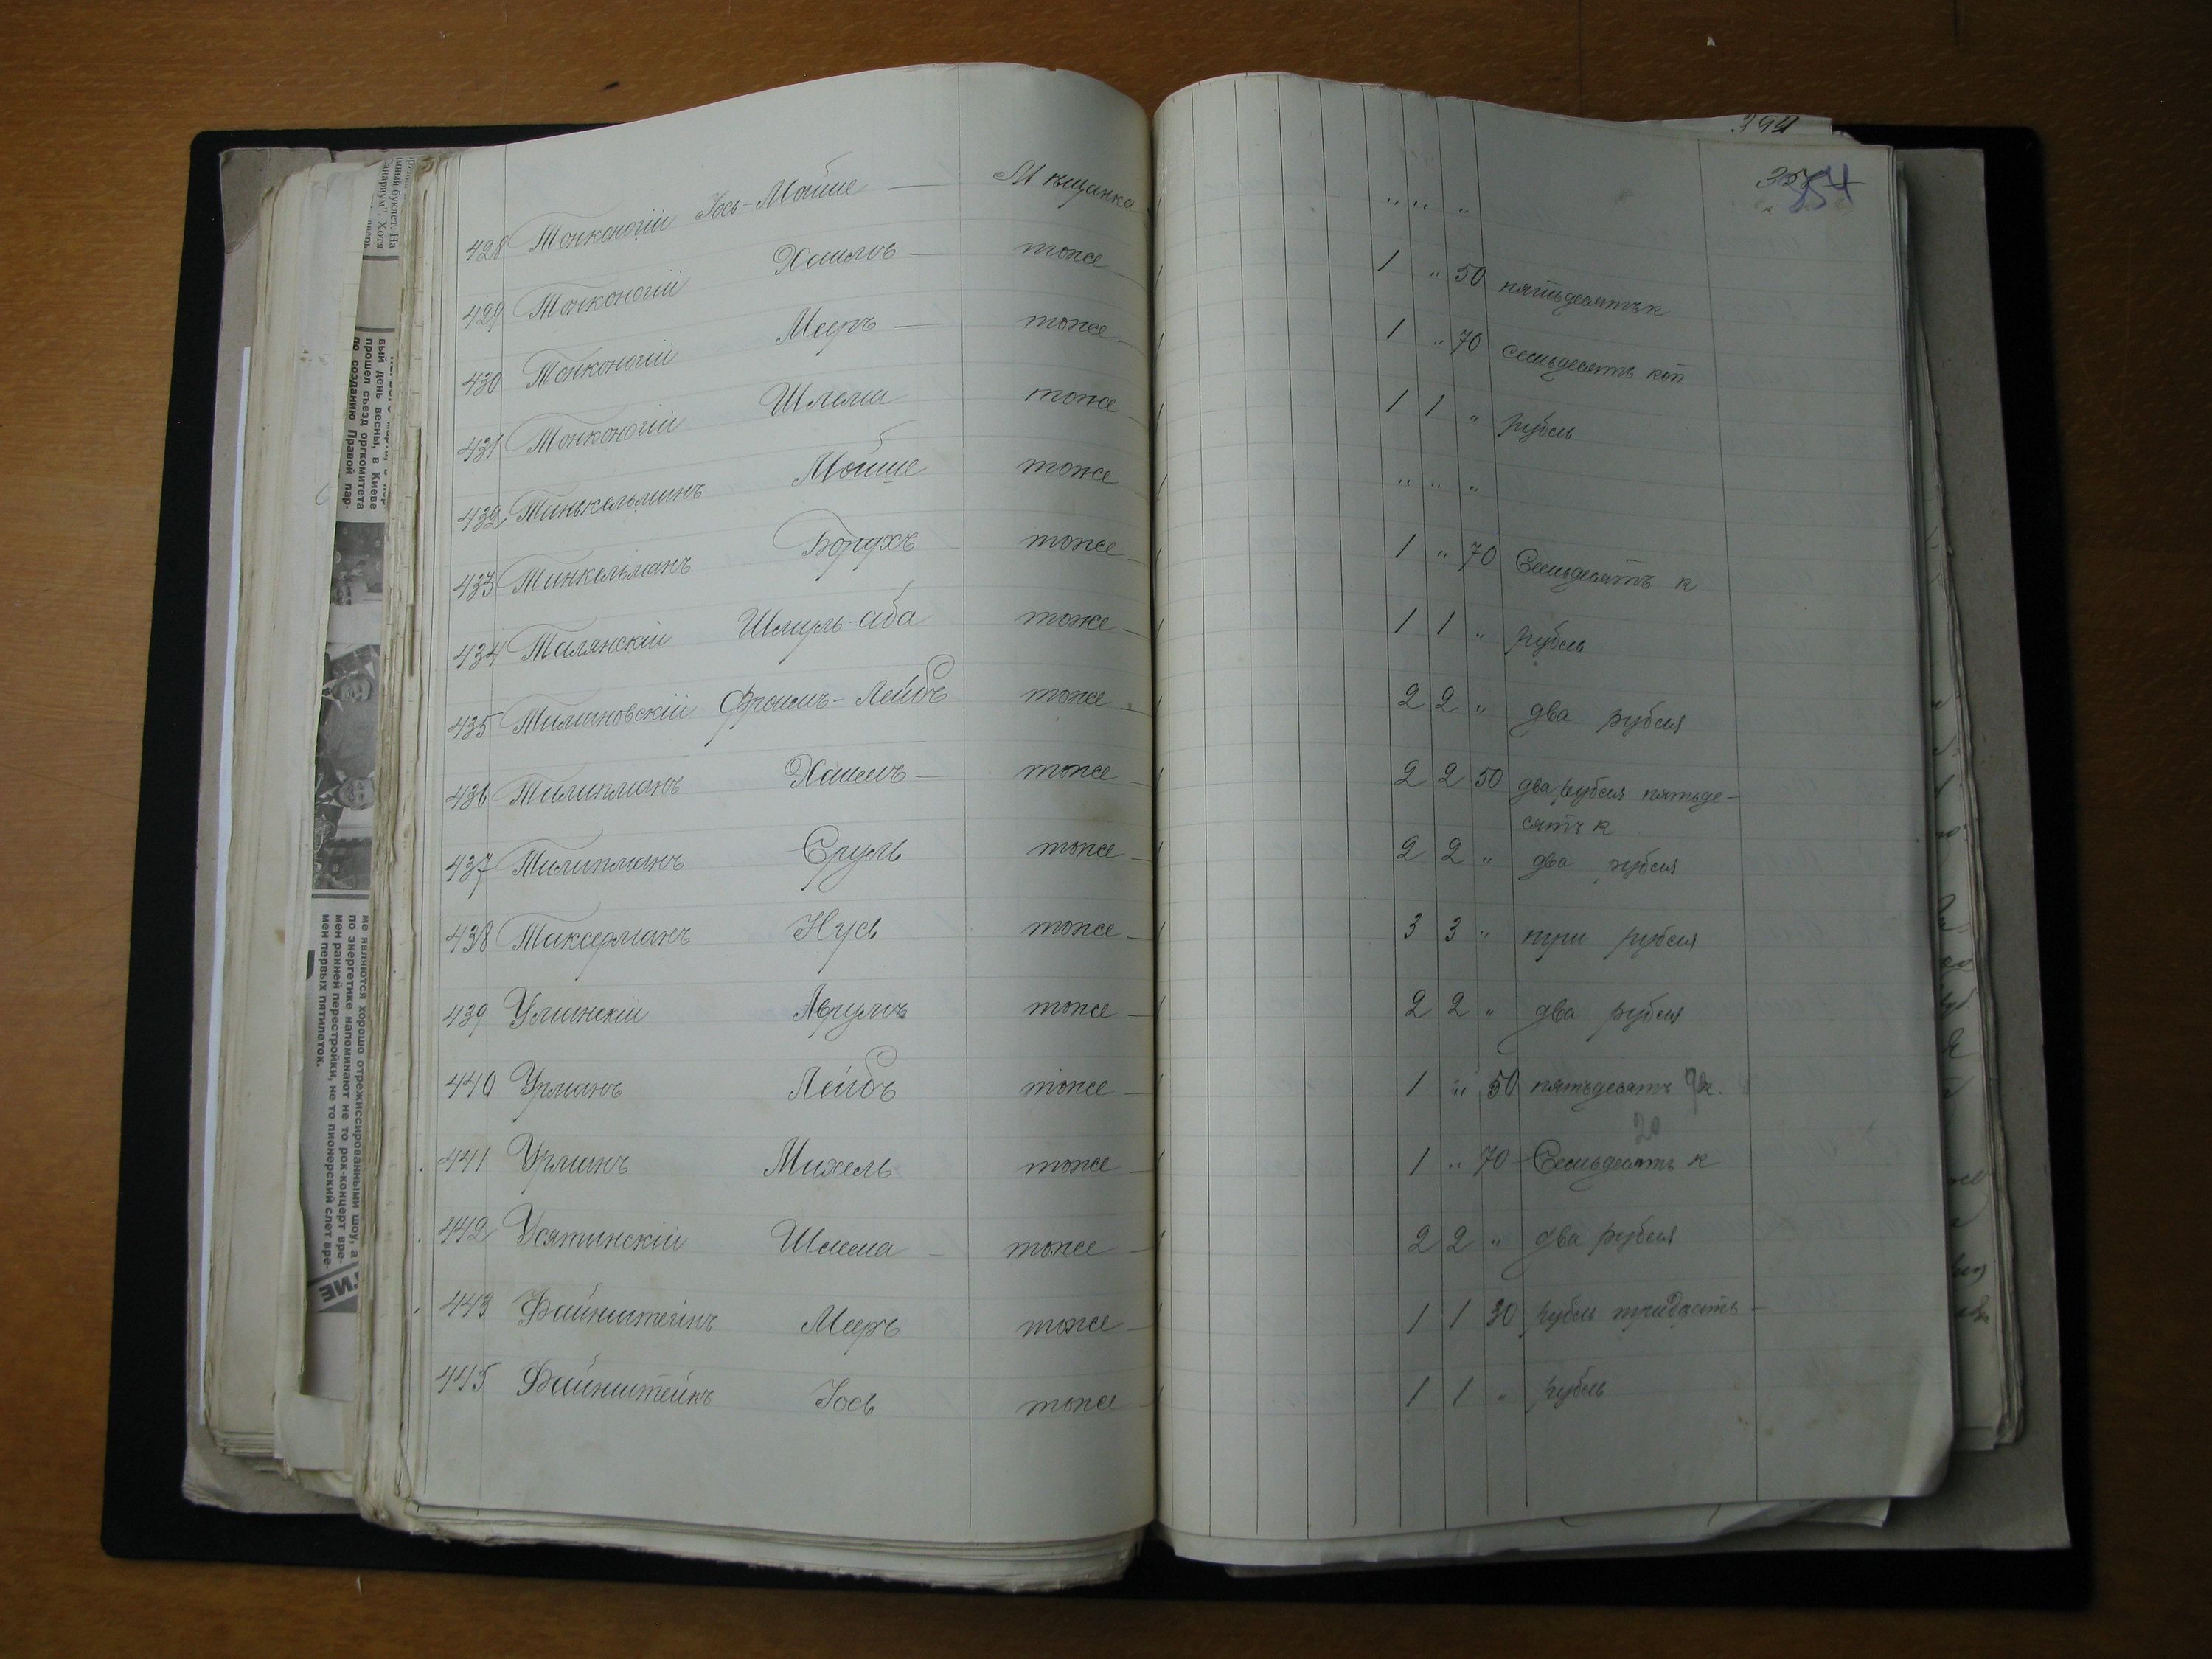 394
354
428 Тонконогій Іось-Мойше — Мѣщанка " " "
429 Тонконогій Хаимъ — тоже 1 " 50 пятьдесятъ к
430 Тонконогій Меръ — тоже 1 " 70 семьдесятъ коп
431 Тонконогій Шлема тоже 1 1 " рубль
432 Тинькельманъ Мойше тоже " " "
433 Тинкельманъ Борухъ тоже 1 " 70 Семьдесятъ к
434 Талянскій Шмуль-Аба тоже 1 1 " рубль
435 Тиминовскій Фроимъ-Лейбъ тоже 2 2 " два рубля
436 Тилипманъ Хаимъ — тоже 2 2 50 два рубля пятьде-
сятъ к
437 Тилипманъ Сруль тоже 2 2 " два рубля
438 Таксерманъ Нусь тоже 3 3 " три рубля
439 Улинскій Аврумъ тоже 2 2 " два рубля
440 Урманъ Лейбъ тоже 1 " 50 пятьдесятъ к.
20
441 Урманъ Михель тоже 1 " 70 Семьдесятъ к
442 Усятинскій Шлема — тоже 2 2 " два рубля
443 Файнштейнъ Меръ тоже 1 1 30 рубль тридцать —
445 Файнштейнъ Іось тоже 1 1 " рубль
вый день весны, в Киеве
прошел съезд оргкомитета
по созданию Правой пар-
ме являются хорошо отрежиссированными шоу, а
по энергетике напоминают не то рок-концерт вре-
мен ранней перестройки, не то пионерский слет вре-
мен первых пятилеток.